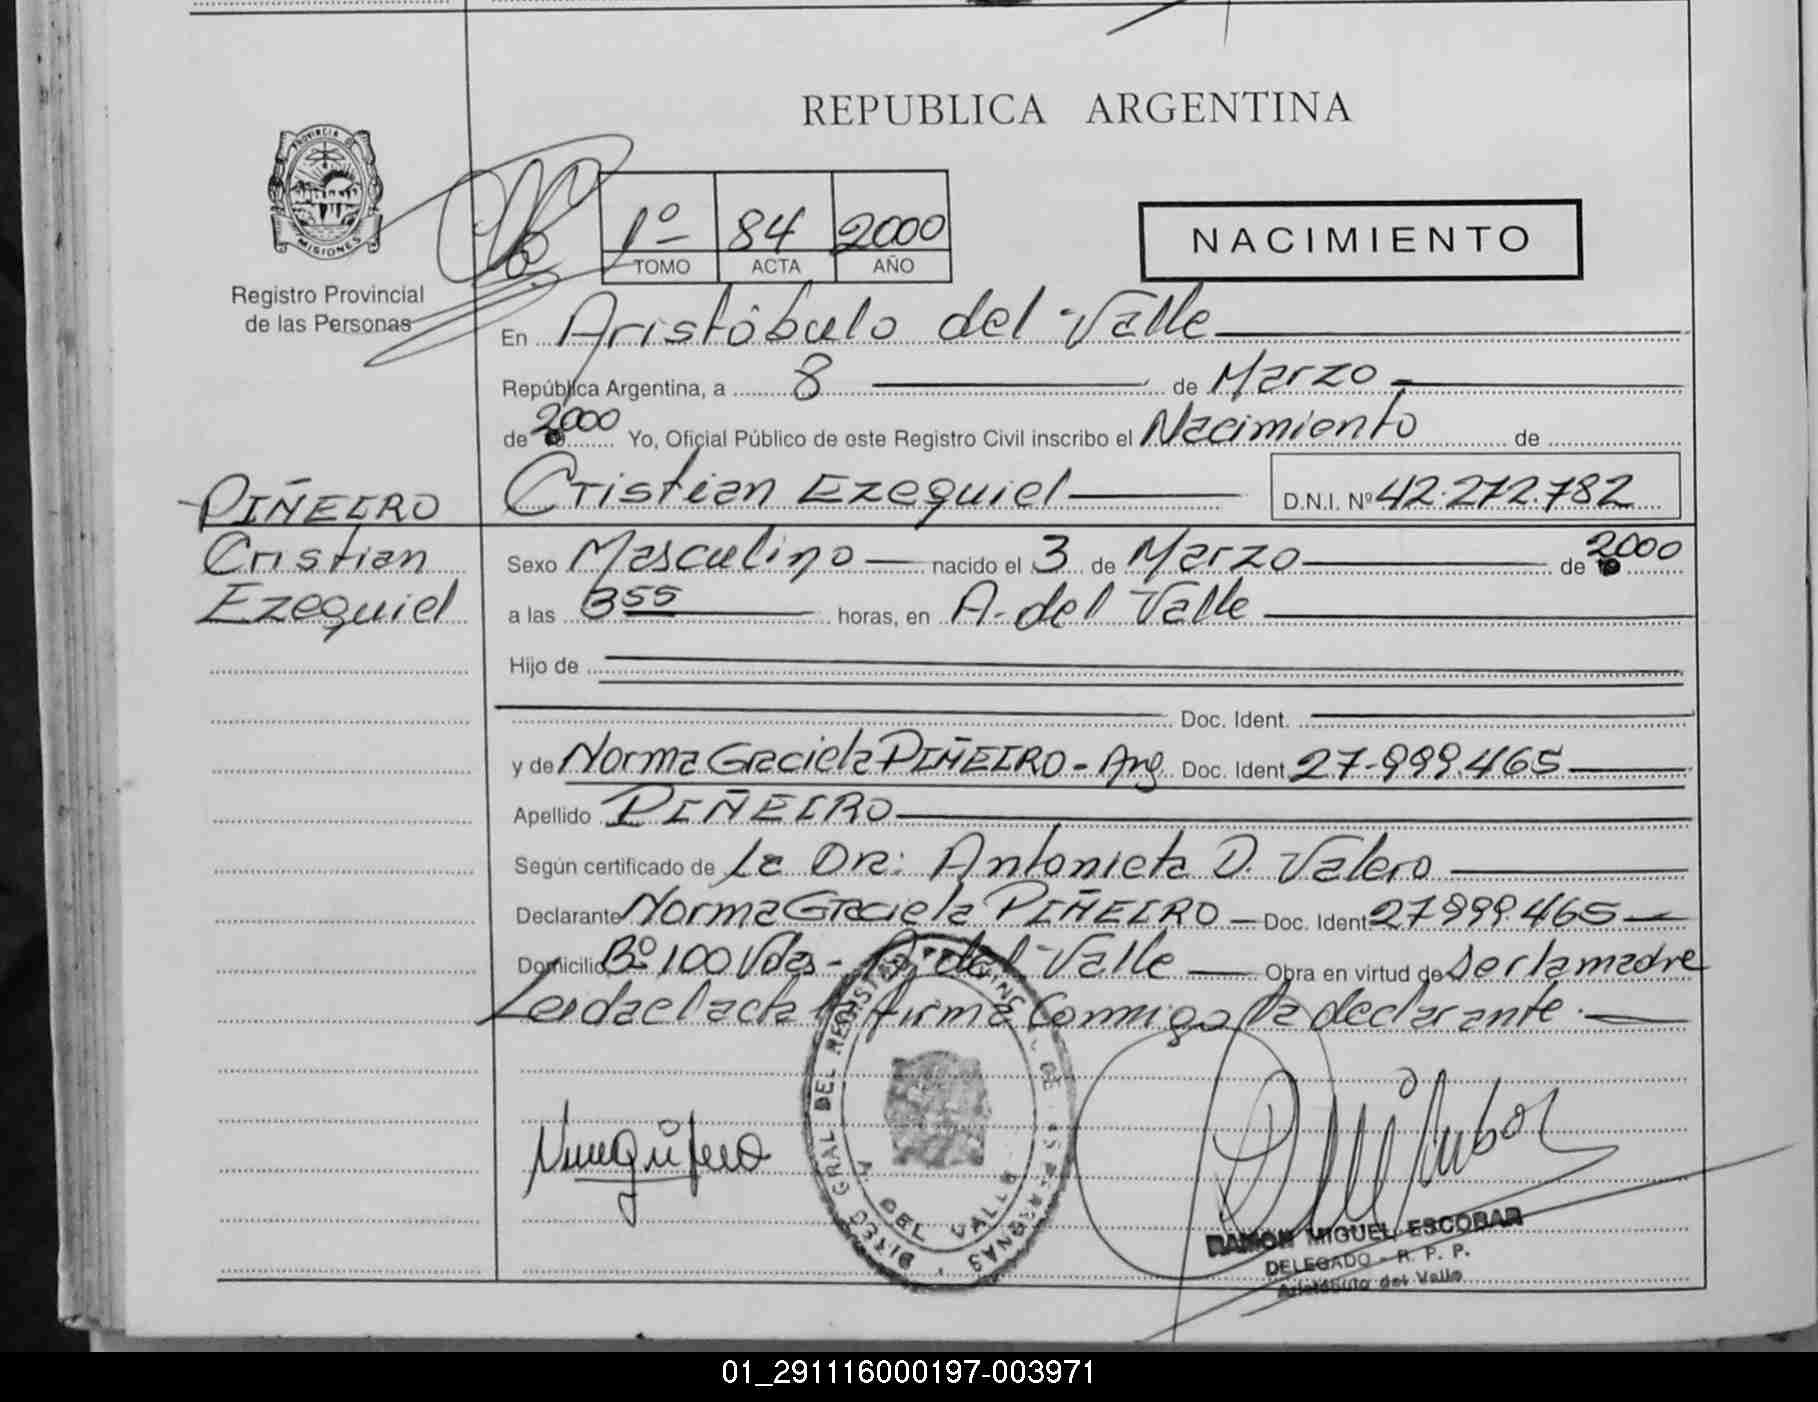 REPUBLICA ARGENTINA
PROVINCIA DE
MISIONES
Registro Provincial
de las Personas
1º 84 2000
TOMO ACTA AÑO
NACIMIENTO
En Aristóbulo del Valle
República Argentina, a 8 de Marzo
de 2000 Yo, Oficial Público de este Registro Civil inscribo el Nacimiento de
PIÑEIRO Cristian Ezequiel D.N.I. Nº 42.272.782
Cristian Sexo Masculino nacido el 3 de Marzo de 2000
Ezequiel a las 3 55 horas, en A. del Valle
Hijo de
Doc. Ident.
y de Norma Graciela PIÑEIRO - Arg. Doc. Ident. 27.999.465
Apellido PIÑEIRO
Según certificado de La Dra: Antonieta D. Valero
Declarante Norma Graciela PIÑEIRO Doc. Ident 27999.465
Domicilio Bº 100 Vdas - A. del Valle Obra en virtud de ser la madre
Leida el acta la firma Conmigo la declarante.
DIREC. GRAL DEL REGISTRO PROVINCIAL DE LAS PERSONAS
A. DEL VALLE
RAMON MIGUEL ESCOBAR
DELEGADO - R. P. P.
Aristóbulo del Valle
01_291116000197-003971